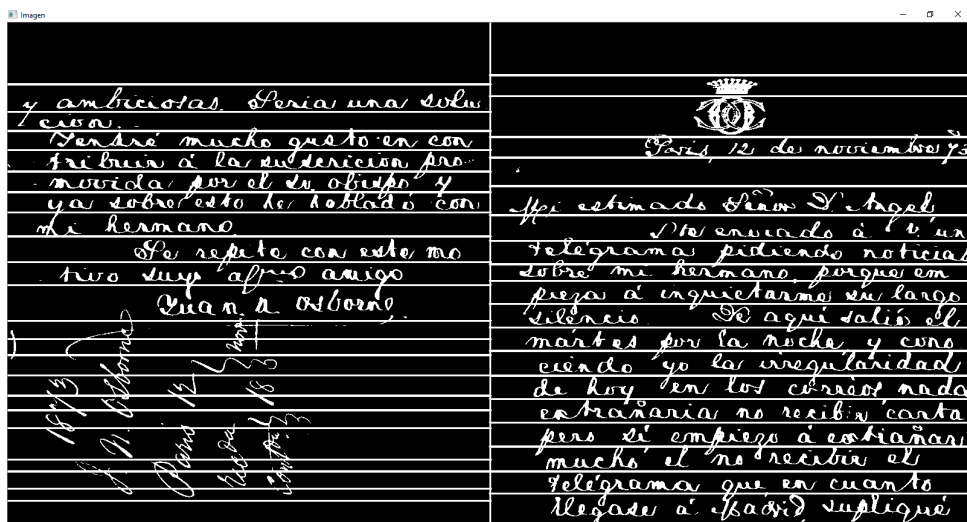 Imagen
y ambiciosas. Seria una solu
cion.
Tendré mucho gusto en con
tribuir á la suscricion pro
movida por el Sr. obispo y
ya sobre esto he hablado con
mi hermano.
Se repite con este mo
tivo suyo afmo amigo
Juan N. Osborne
1873
J. N. Osborne
Paris 12 novr.
18 3
Paris, 12 de noviembre 73
Mi estimado Señor D. Angel
He enviado á V. un
telégrama pidiendo noticias
sobre mi hermano, porque em
pieza á inquietarme su largo
silencio. De aquí salió el
mártes por la noche y cono
ciendo yo la irregularidad
de hoy en los correos nada
extrañaria no recibir carta
pero sí empiezo á extrañar
mucho el no recibir el
telégrama que en cuanto
llegase á Madrid supliqué